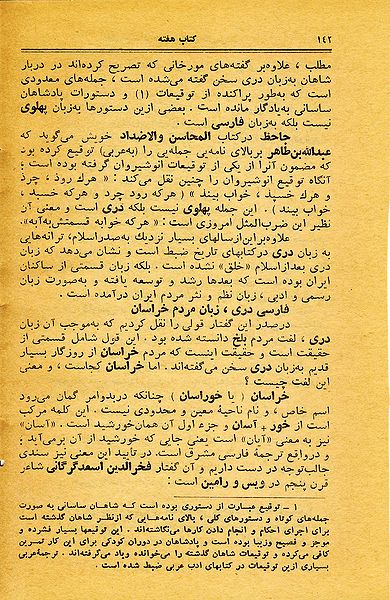 ۱۴۲ کتاب هفته
مطلب ، علاوه‌بر گفته‌های مورخانی که تصریح کرده‌اند در دربار
شاهان به‌زبان دری سخن گفته می‌شده است ، جمله‌های معدودی
است که به‌طور پراکنده از توقیعات (۱) و دستورات پادشاهان
ساسانی به‌یادگار مانده است . بعضی ازین دستورها به‌زبان پهلوی
نیست بلکه به‌زبان فارسی است .
جاحظ در‌کتاب المحاسن والاضداد خویش می‌گوید که
عبدالله‌بن‌طاهر بربالای نامه‌یی جمله‌یی را (به‌عربی) توقیع کرده بود
که مضمون آنرا از یکی از توقیعات انوشیروان گرفته بوده است ؛
آنگاه توقیع انوشیروان را چنین نقل می‌کند : « هرك رود ، چرذ
و هرك خسبد ، خواب بیند » ( هرکه رود چرد و هرکه خسبد ،
خواب بیند ) . این جمله پهلوی نیست بلکه دری است و معنی آن
نظیر این ضرب‌المثل امروزی است : « هرکه خوابه قسمتش به‌آبه».
علاوه‌براین‌ازسالهای بسیار نزدیك به‌صدراسلام، ترانه‌هایی
به زبان دری درکتابهای تاریخ ضبط است و نشان می‌دهد که زبان
دری بعدازاسلام «خلق» نشده است . بلکه زبان قسمتی از ساکنان
ایران بوده است که بعدها رشد و توسعه یافته و به‌صورت زبان
رسمی و ادبی ، زبان نظم و نثر مردم ایران درآمده است .
فارسی دری ، زبان مردم خراسان
درصدر این گفتار قولی را نقل کردیم که به‌موجب آن زبان
دری ، لغت مردم بلخ دانسته شده بود . این قول شامل قسمتی از
حقیقت است و حقیقت اینست که مردم خراسان از روزگار بسیار
قدیم به‌زبان دری سخن می‌گفته‌اند . اما خراسان کجاست ، و معنی
این لفت چیست ؟
خراسان ( یا خوراسان ) چنانکه دربدوامر گمان می‌رود
اسم خاص ، و نام ناحیهٔ معین و محدودی نیست . این کلمه مرکب
است از خور + آسان و جزء اول آن همان‌خورشید است . «آسان»
نیز به معنی «آیان» است یعنی جایی که خورشید از آن برمی‌آید :
و درواقع ترجمهٔ فارسی مشرق است. در تایید این معنی نیز سندی
جالب‌توجه در دست داریم و آن گفتار فخرالدین اسعدگرگانی شاعر
قرن پنجم در ویس و رامین است :
۱ – توقیع عبارت از دستوری بوده است که شاهان ساسانی به صورت
جمله‌های کوتاه و دستورهای کلی ، بالای نامه‌هایی که ازنظر شاهان گذشته است
برای اجرای احکام و انجام دادن کارها می‌نگاشته‌اند . این توقیعها بسیار فشرده و
موجز و فصیح وزیبا بوده است و پادشاهان در دوران کودکی برای این کار تمرین
کافی می‌کرده و توقیعات شاهان گذشته را می‌خوانده ویاد می‌گرفته‌اند . ترجمهٔ‌عربی
بسیاری ازین توقیعات در کتابهای ادب عربی ضبط شده است .